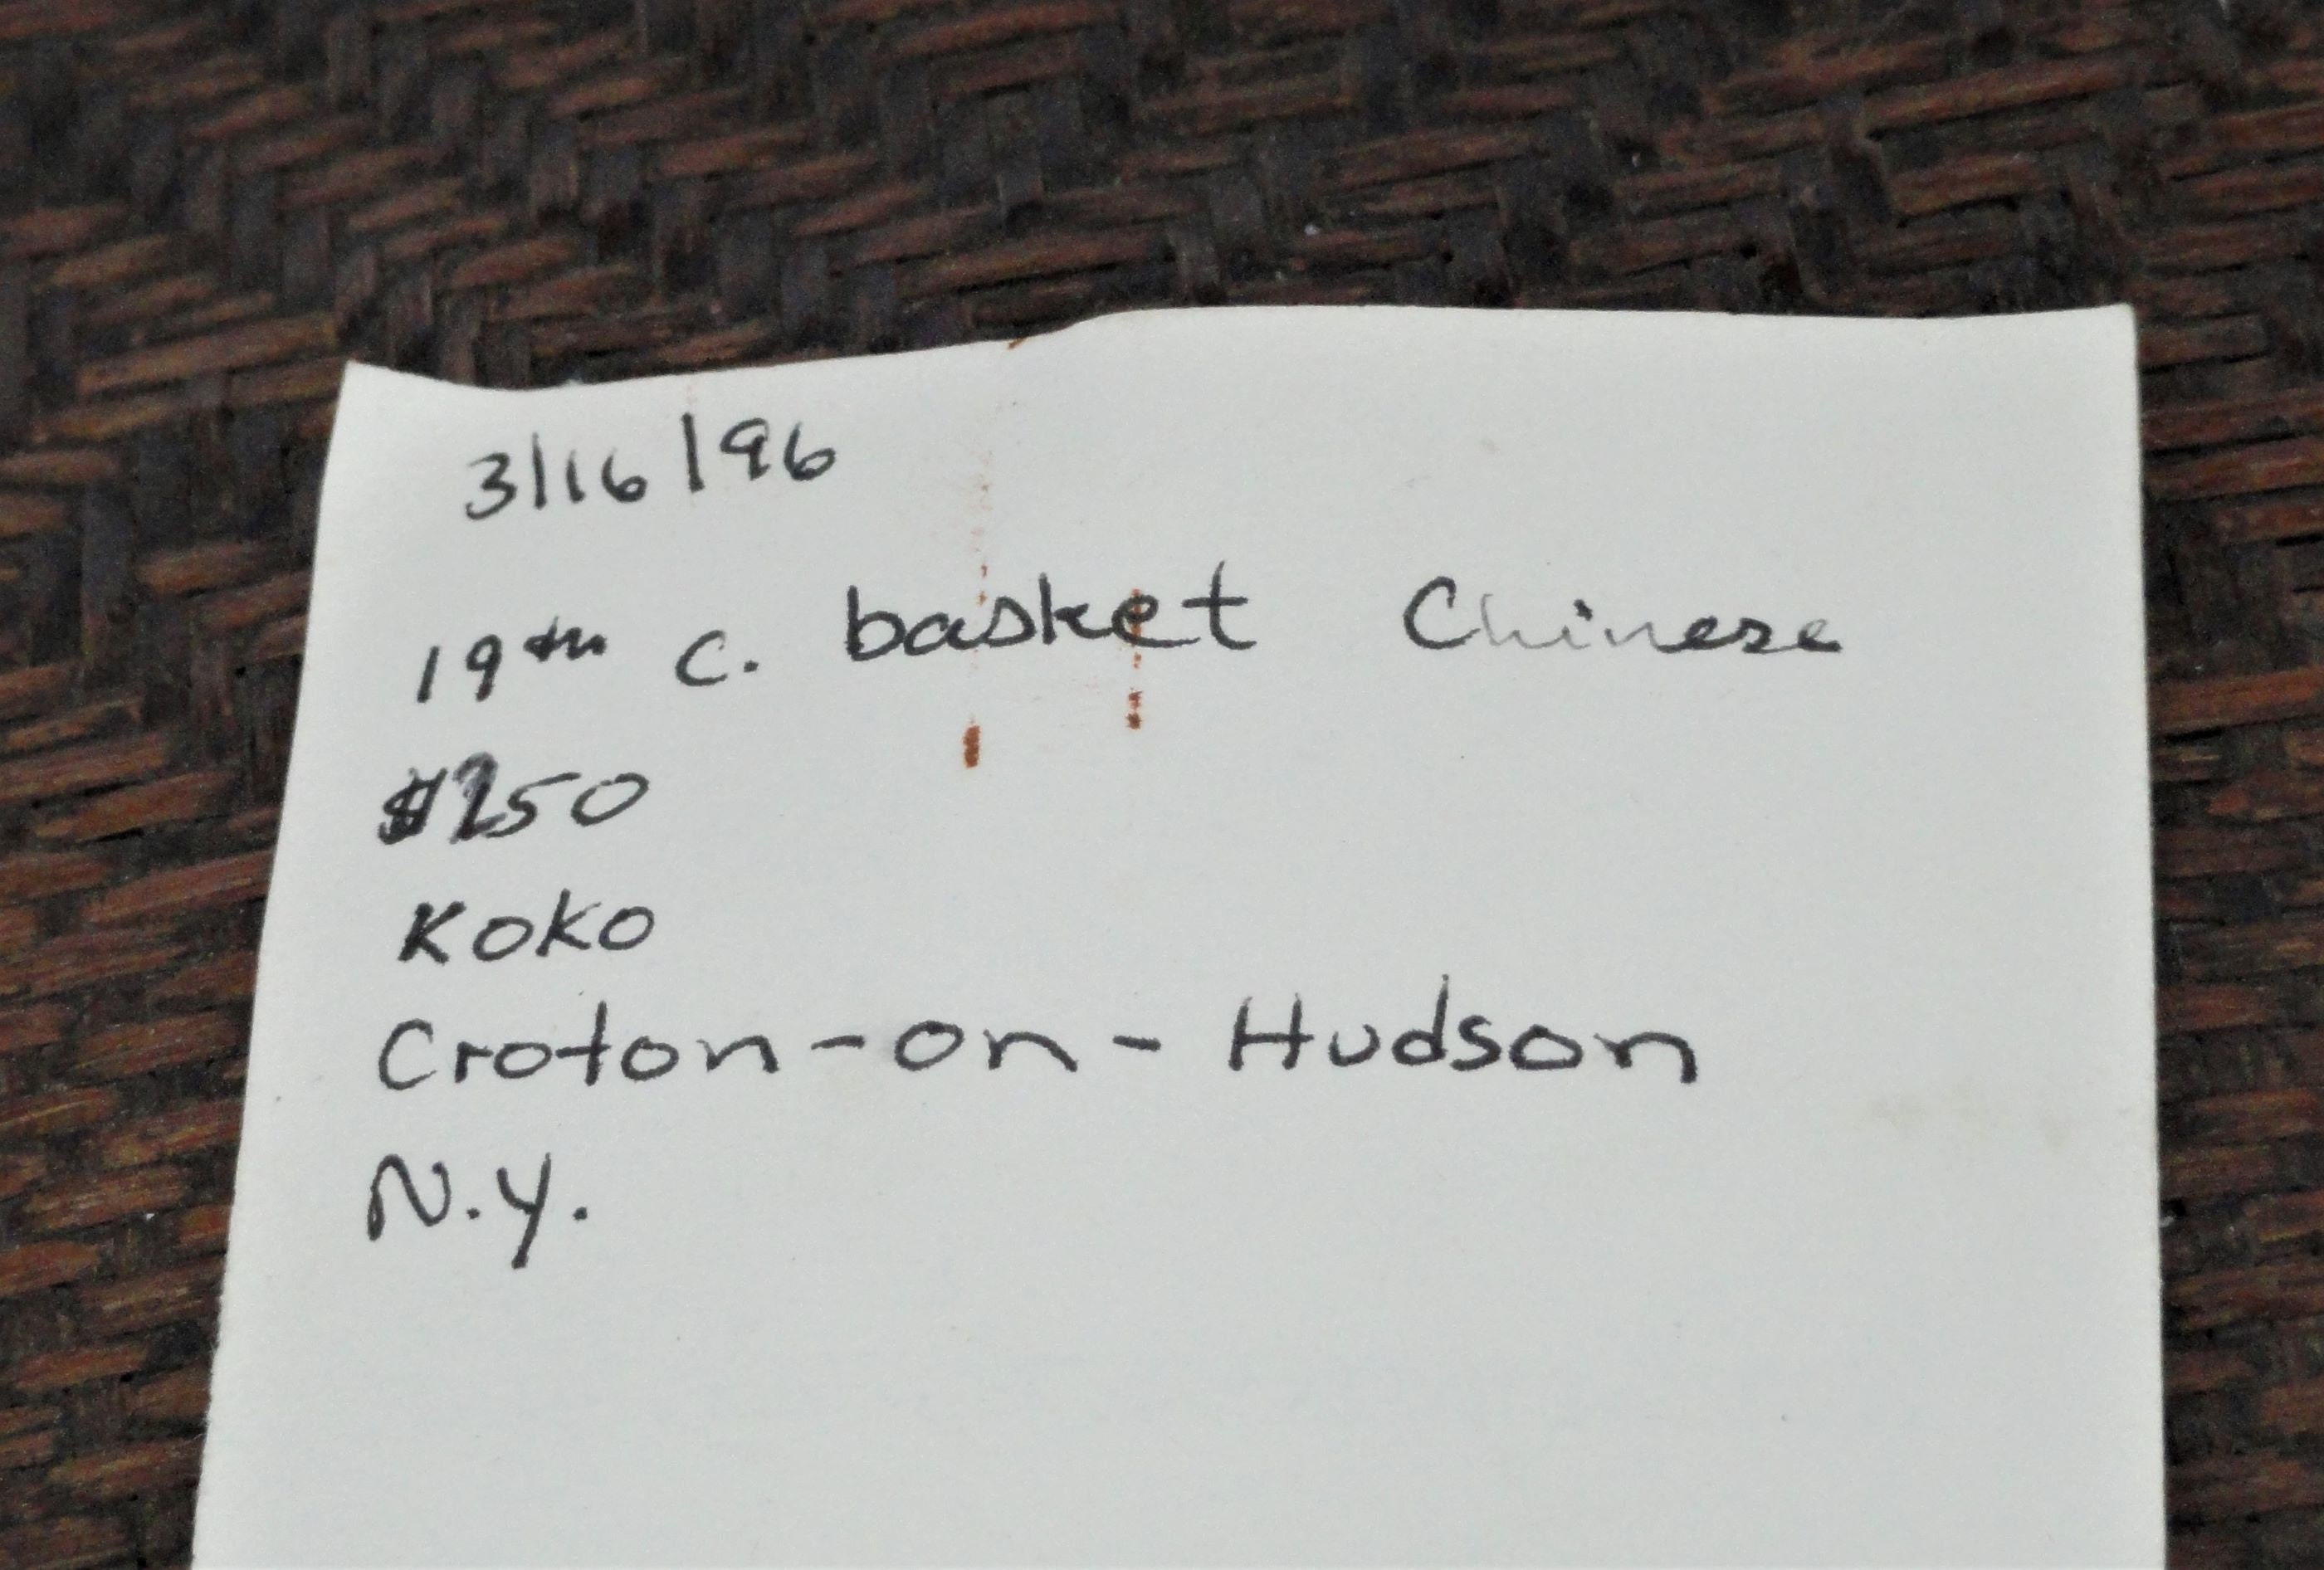 3/16/96
19th c. basket Chinese
$250
Koko
Croton-on-Hudson
N.Y.